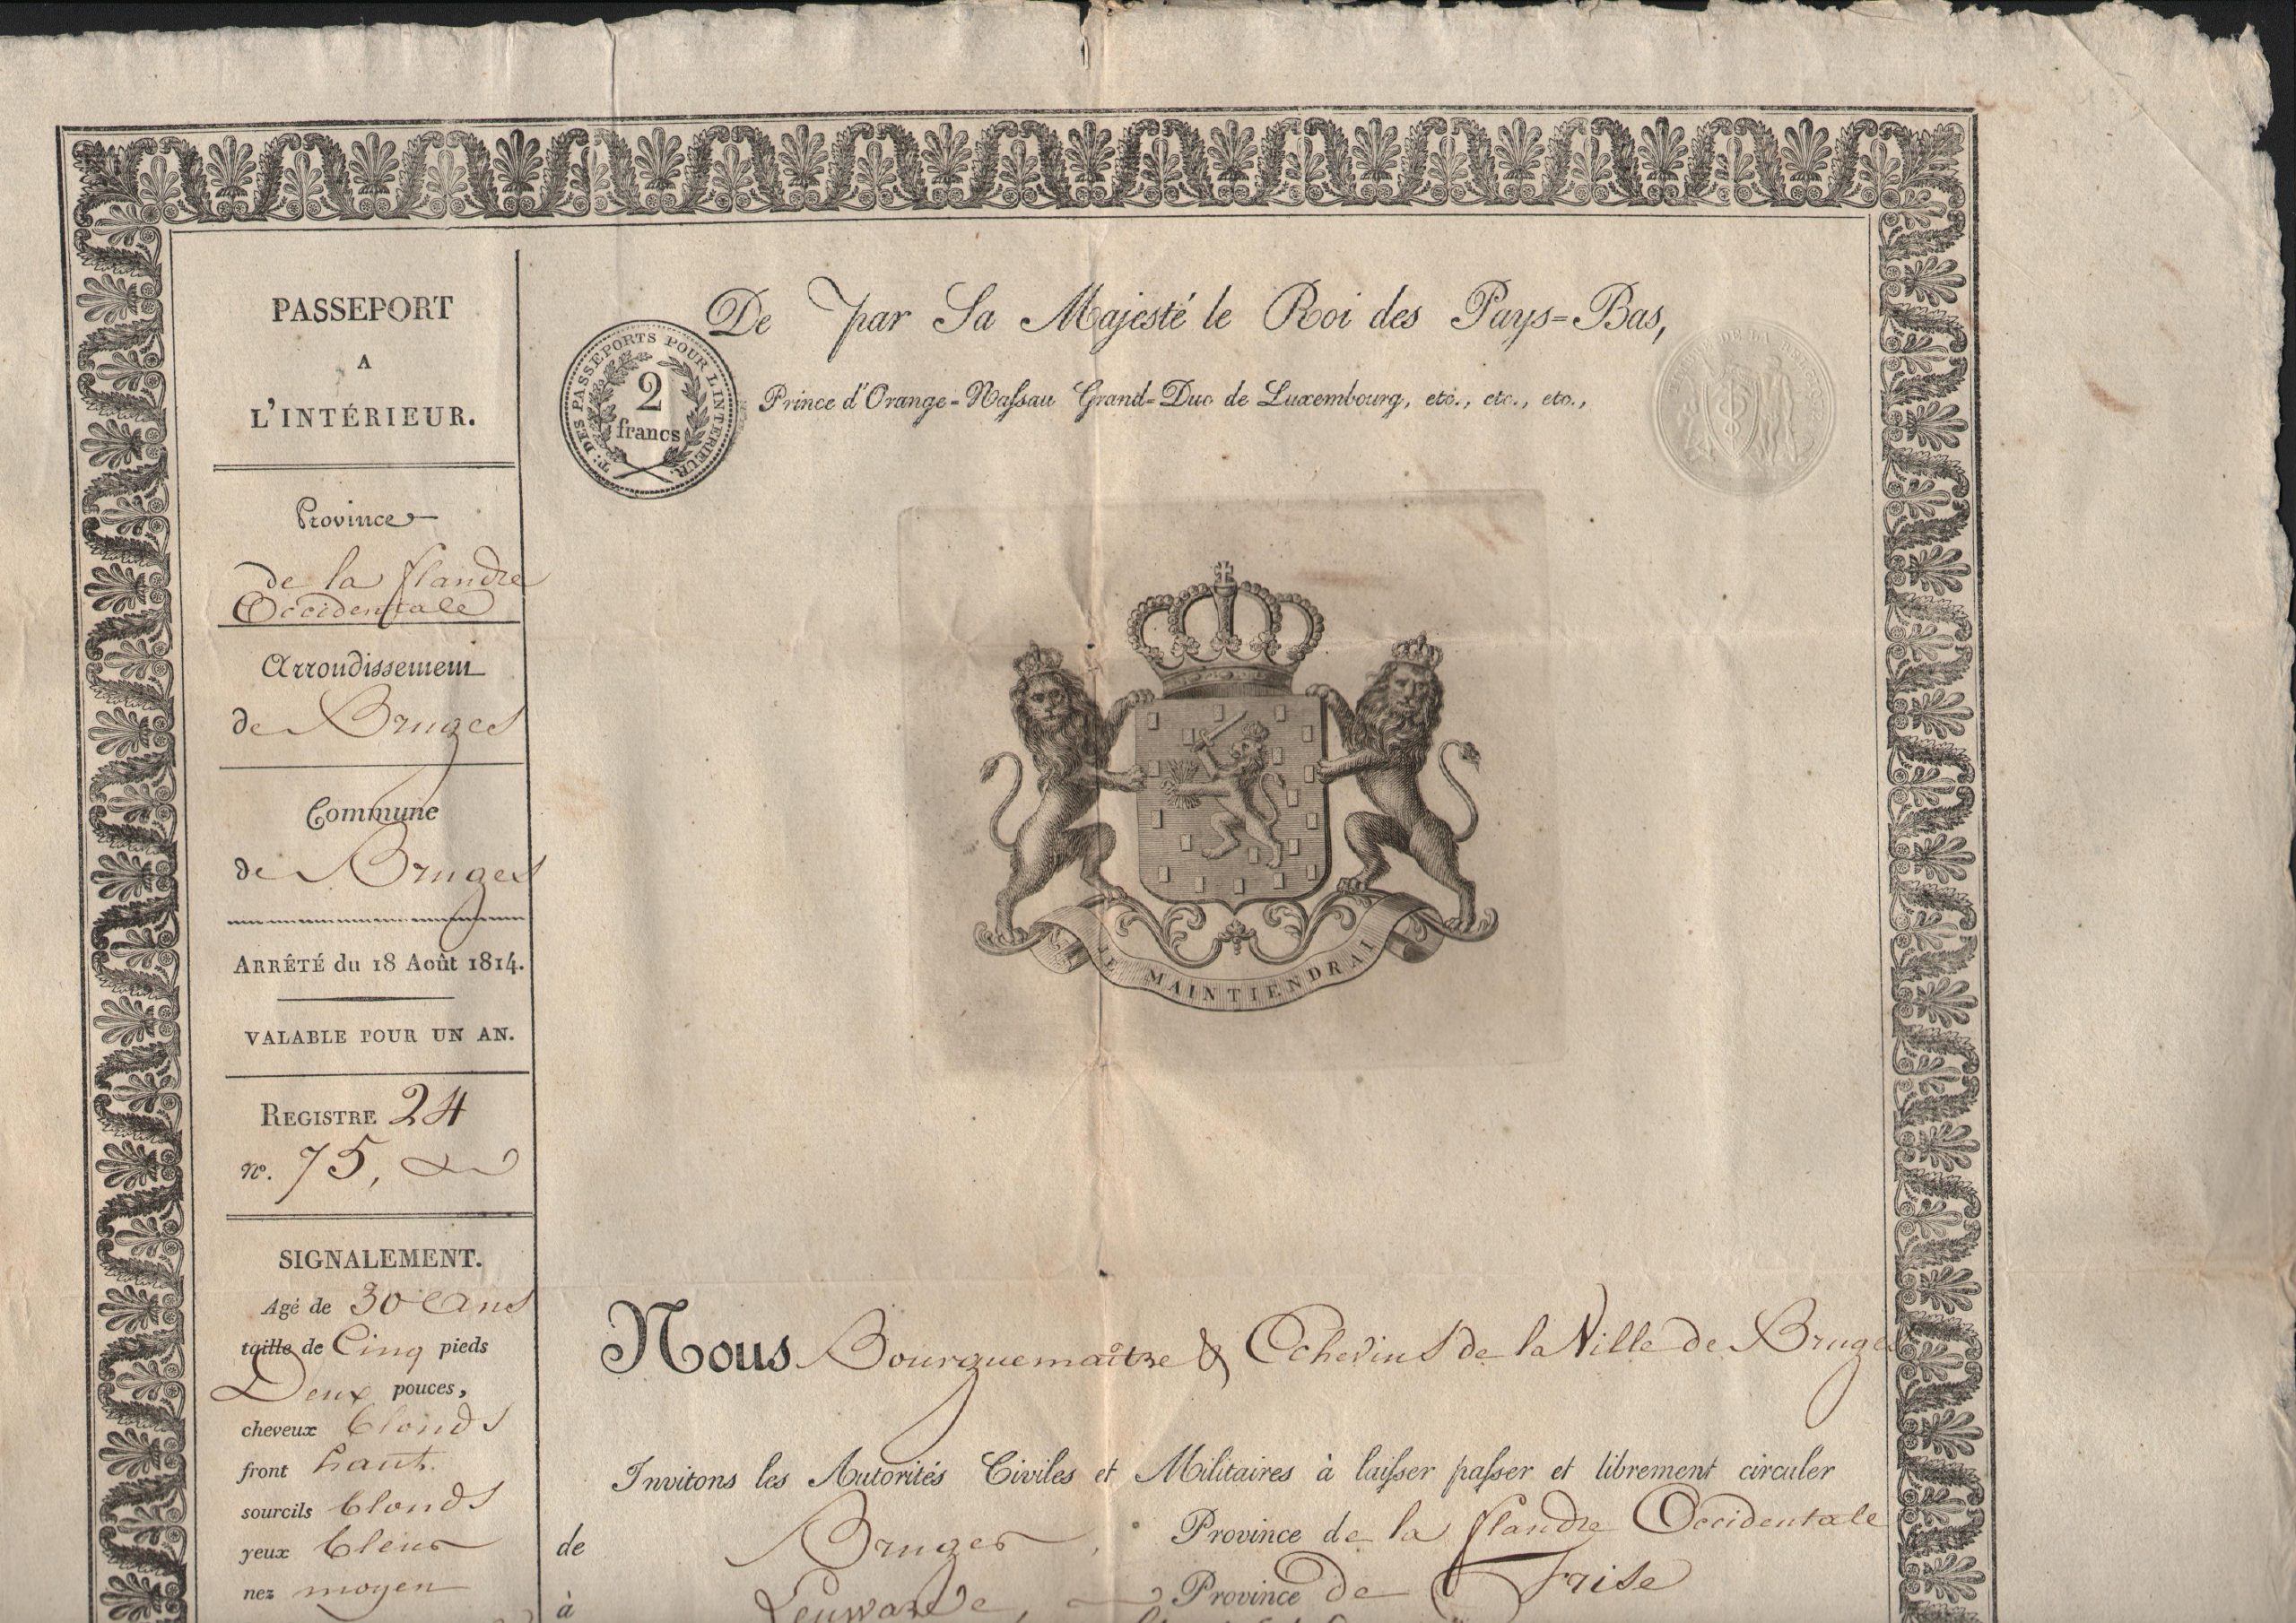 PASSEPORT
A
L'INTÉRIEUR.
Province
de la flandre
Occidentale
Arrondissement
de Bruges
Commune
de Bruges
ARRÊTÉ du 18 Août 1814.
VALABLE POUR UN AN.
REGISTRE 24
nº. 75,
SIGNALEMENT.
Agé de 30 Ans
taille de Cinq pieds
Deux pouces,
cheveux blonds
front haut.
sourcils blonds
yeux bleus
nez moyen
De par Sa Majesté le Roi des Pays-Bas,
T. DES PASSEPORTS POUR L'INTERIEUR.
2
francs
Prince d'Orange-Nassau Grand-Duc de Luxembourg, etc., etc., etc.,
DE LA
JE MAINTIENDRAI
Nous Bourguemaître & Echevins de la Ville de Bruges
Invitons les Autorités Civiles et Militaires à laisser passer et librement circuler
de Bruges, Province de la flandre Occidentale
à Leuwarde, Province de Frise